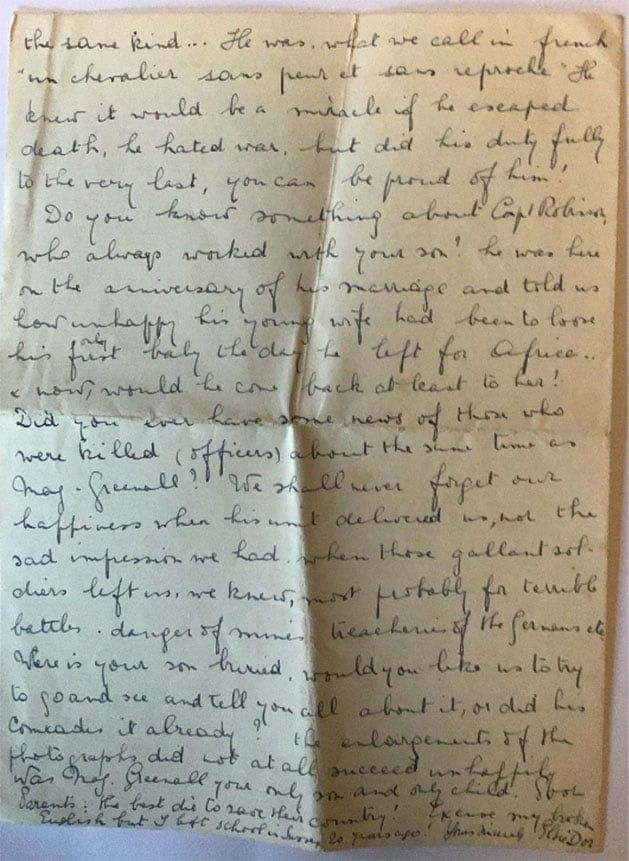 the same kind... He was, what we call in french
"un chevalier sans peur et sans reproche" He
knew it would be a miracle if he escaped
death, he hated war, but did his duty fully
to the very last, you can be proud of him!
Do you know something about Capt Robinson,
who always worked with your son? he was here
on the anniversary of his marriage and told us
how unhappy his young wife had been to loose
his first only baby the day he left for Africa..
& now, would he come back at least to her!
Did you ever have some news of those who
were killed (officers) about the same time as
Maj. Greenall? We shall never forget our
happiness when his unit delivered us, nor the
sad impression we had, when those gallant sol-
diers left us, we knew, most probably for terrible
battles. danger of mines, treacheries of the Germans etc
Were is your son buried, would you like us to try
to go and see and tell you all about it, or did his
comrades it already? the enlargements of the
photographs did not at all succeed unhappily
was Maj. Greenall your only son and only child. Poor
Parents: the best die to save their country! Excuse my broken
English but I left school in Sussex 20 years ago! Yours sincerely